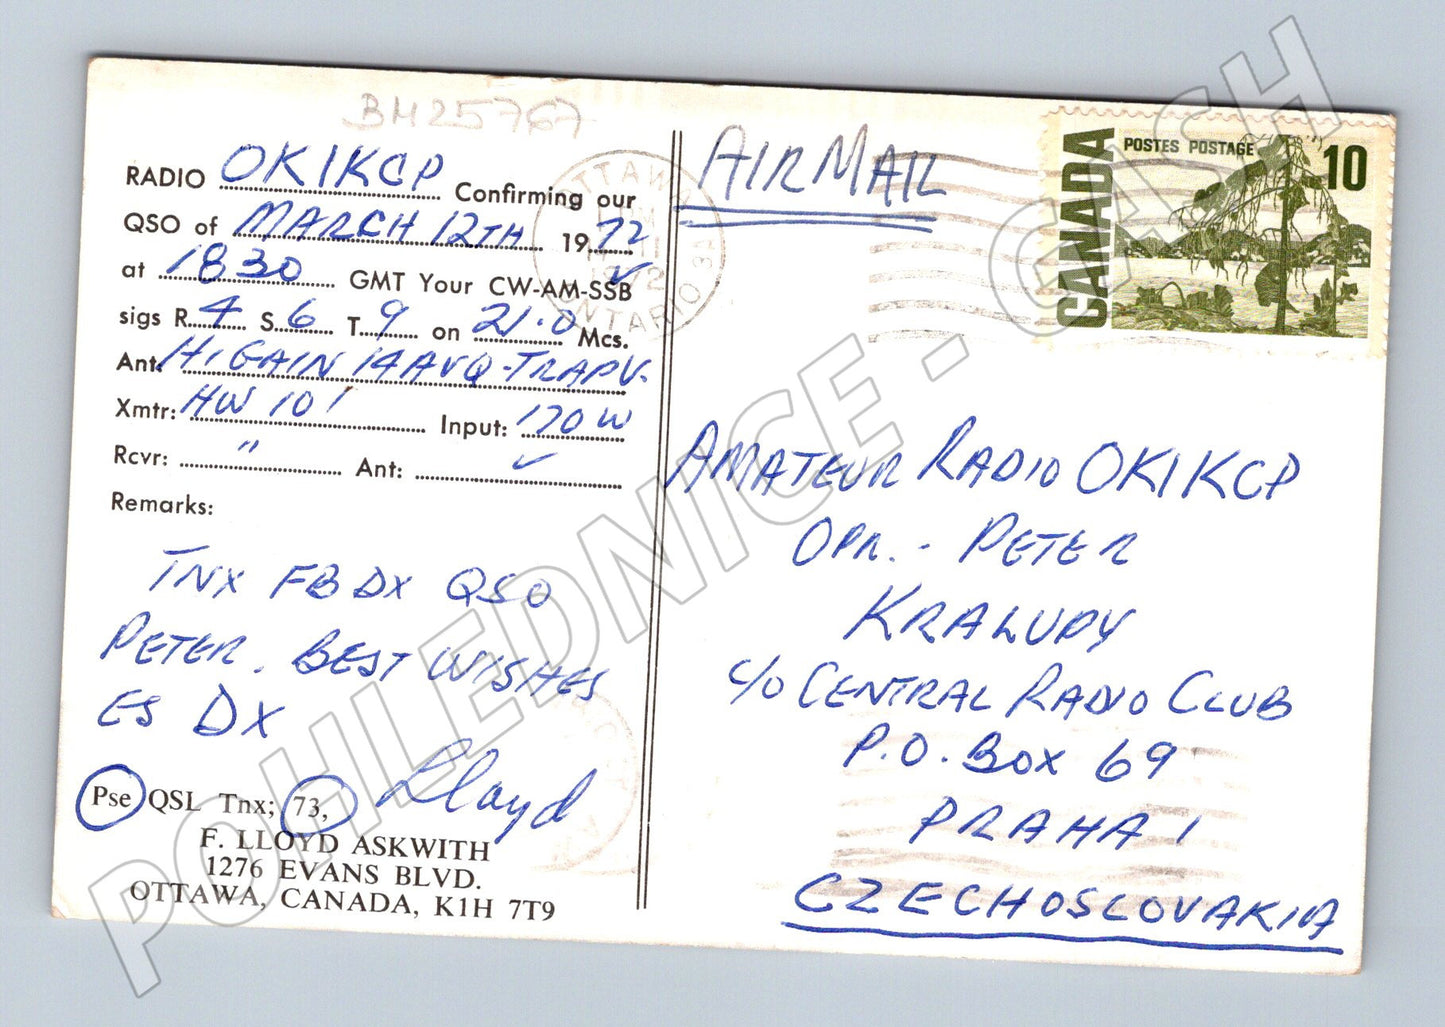 BH25767
RADIO OK1KCP Confirming our
QSO of MARCH 12TH 1972
at 1830 GMT Your CW-AM-SSB ✓
sigs R 4 S 6 T 9 on 21.0 Mcs.
Ant. HI GAIN 14AVQ-TRAPV.
Xmtr: HW 101 Input: 170 W
Rcvr: " Ant: ✓
Remarks:
TNX FB DX QSO
PETER. BEST WISHES
ES DX
Lloyd
Pse QSL Tnx; 73,
F. LLOYD ASKWITH
1276 EVANS BLVD.
OTTAWA, CANADA, K1H 7T9
AIR MAIL
OTTAWA
ONTARIO
CANADA
POSTES POSTAGE
10
AMATEUR RADIO OK1KCP
OPR. - PETER
KRALUPY
c/o CENTRAL RADIO CLUB
P.O. BOX 69
PRAHA 1
CZECHOSLOVAKIA
POHLEDNICE - CASH